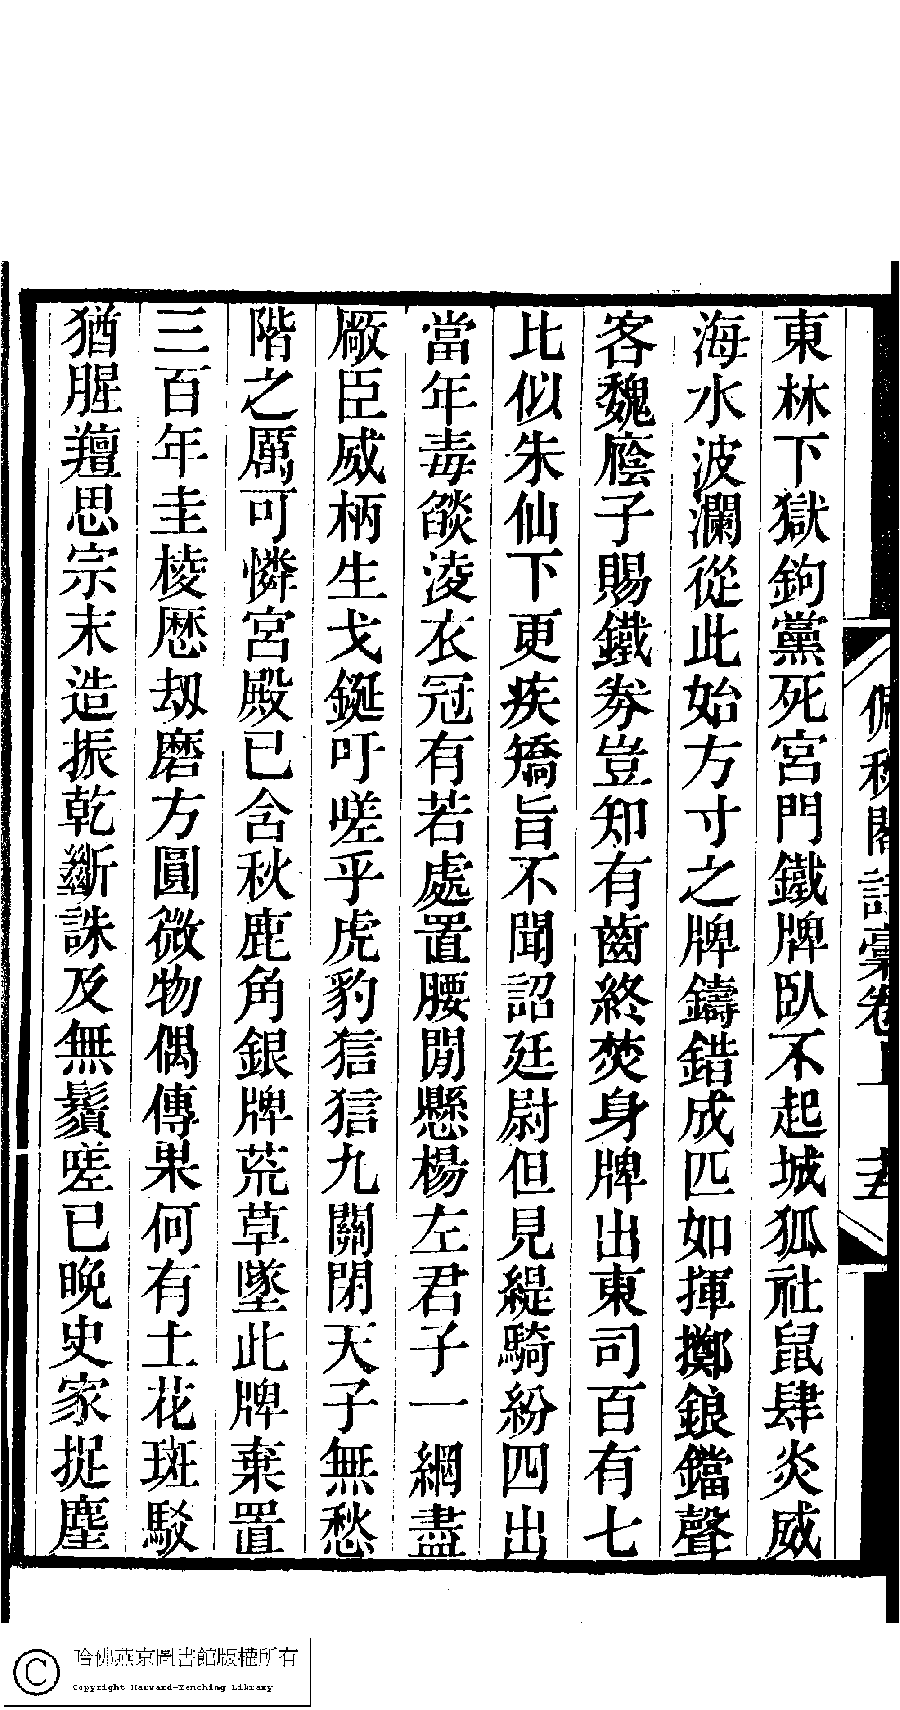 東林下獄鉤黨死宮門鐵牌臥不起城狐社鼠肆炎威
海水波瀾從此始方寸之牌鑄錯成匹如揮擲鋃鐺聲
客魏廕子賜鐵券豈知有齒終焚身牌出東司百有七
比似朱仙下更疾矯旨不聞詔廷尉但見緹騎紛四出
當年毒燄淩衣冠有若處置腰閒懸楊左君子一網盡
厰臣威柄生戈鋋吁嗟乎虎豹狺狺九關閉天子無愁
階之厲可憐宮殿已含秋鹿角銀牌荒草墜此牌棄置
三百年圭棱歴刼磨方圓微物偶傳果何有土花斑駁
猶腥羶思宗末造振乾斷誅及無鬚嗟已晚史家捉塵
佩秋閣詩稾卷上
哈佛燕京圖書館版權所有
Copyright Harvard-Yenching Library